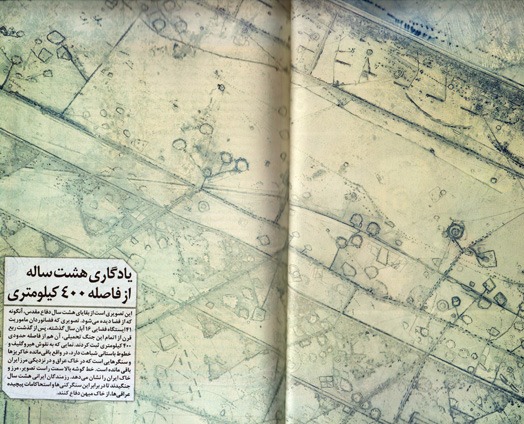 یادگاری هشت ساله
از فاصله ۴۰۰ کیلومتری
این تصویری است از بقایای هشت سال دفاع مقدس، آنگونه
که از فضا دیده می‌شود. تصویری که فضانوردان ماموریت
۲۱ ایستگاه فضایی ۱۶ آبان سال گذشته، پس از گذشت ربع
قرن از اتمام این جنگ تحمیلی، آن هم از فاصله حدودی
۴۰۰ کیلومتری ثبت کردند. نمایی که به نقوش هیروگلیف و
خطوط باستانی شباهت دارد. در واقع باقی مانده خاکریزها
و سنگرهایی است که در خاک عراق و در نزدیکی مرز ایران
باقی مانده است. خط گوشه بالا سمت راست تصویر، مرز و
خاک ایران را نشان می‌دهد. رزمندگان ایرانی هشت سال
جنگیدند تا در برابر این سنگرکنی‌ها و استحکامات پیچیده
عراقی‌ها، از خاک میهن دفاع کنند.